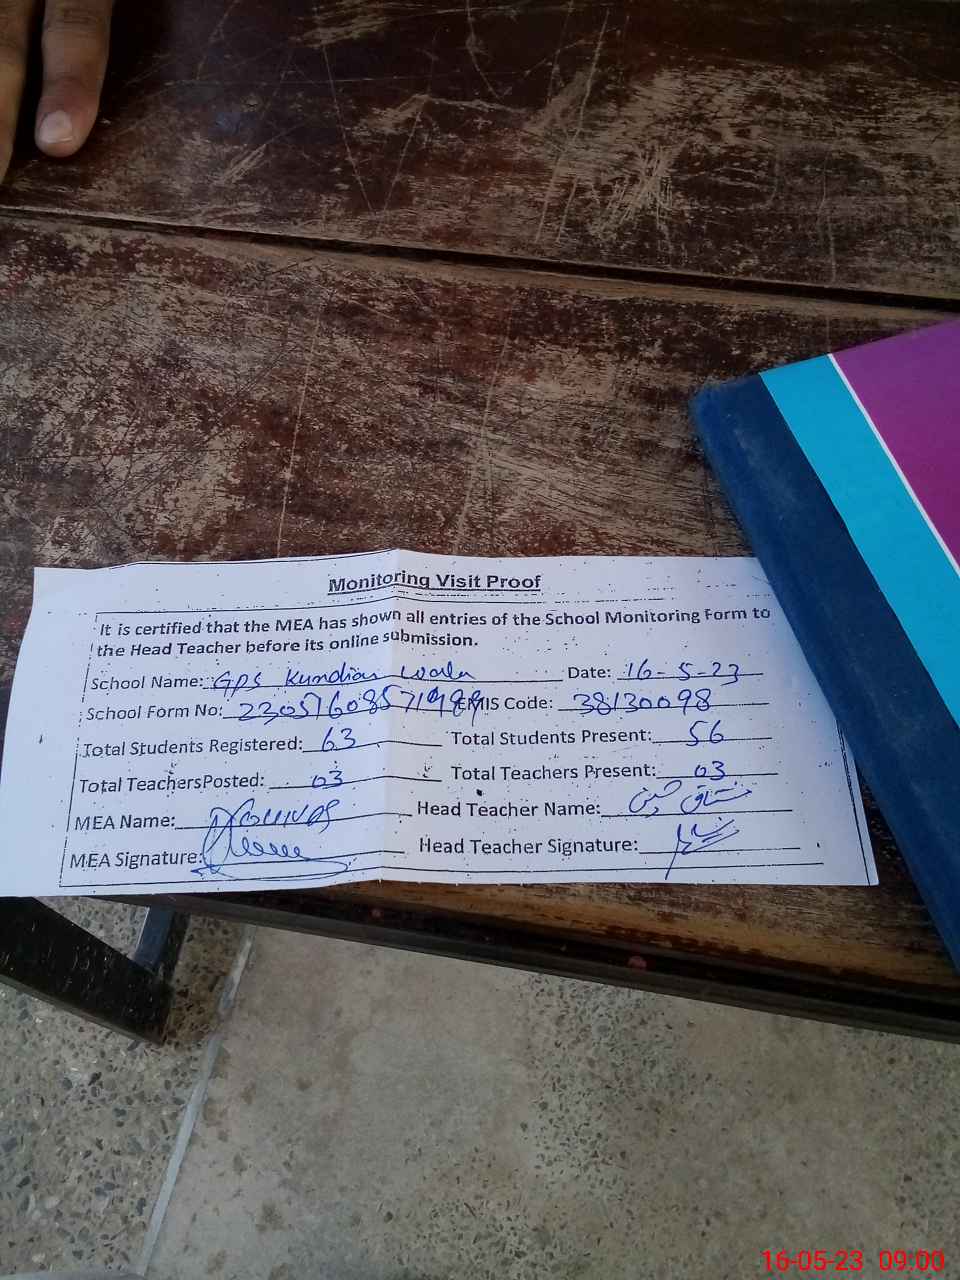 Monitoring Visit Proof
It is certified that the MEA has shown all entries of the School Monitoring Form to
the Head Teacher before its online submission.
School Name: GPS Kundian Wala Date: 16-5-23
School Form No: 23051608571989 EMIS Code: 38130098
Total Students Registered: 63 Total Students Present: 56
Total TeachersPosted: 03 Total Teachers Present: 03
MEA Name: Head Teacher Name: مشتاق حسین
MEA Signature: Head Teacher Signature:
16-05-23 09:00